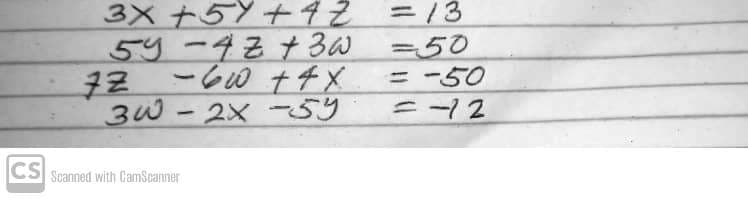 3x + 5y + 4z = 13
5y - 4z + 3w = 50
7z - 6w + 4x = -50
3w - 2x - 5y = -12
CS Scanned with CamScanner